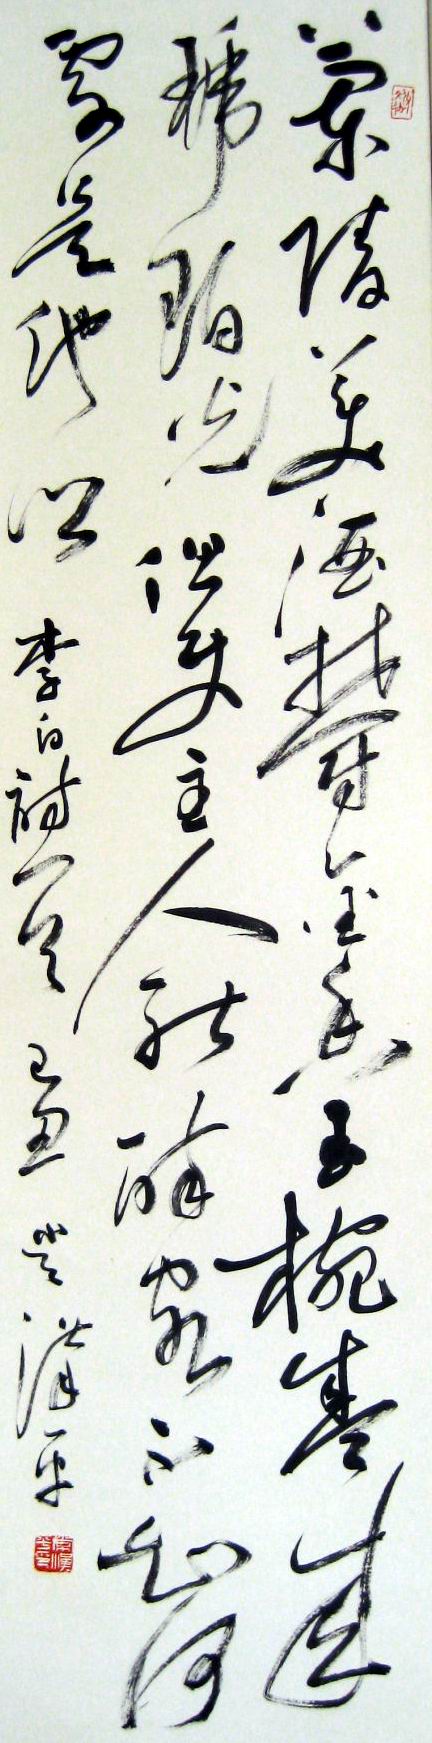 蘭陵美酒鬱金香玉椀盛來
琥珀光但使主人能醉客不知何
處是他鄉 李白詩一首 己丑 漢平